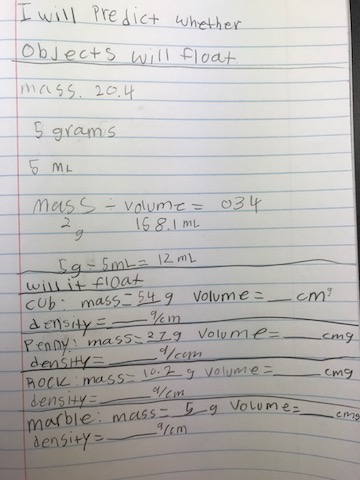 I will Predict whether
Objects will float
mass. 20.4
5 grams
5 mL
mass ÷ volume = 034
2 g 158.1 mL
5g ÷ 5mL = 12 mL
will it float
CUb: mass= 54 g Volume= __ cm³
density= ____ g/cm
Penny: mass= 27g Volume= ___ cmg
density= ____ g/cm
ROCK: mass= 10.2 g Volume= ___ cmg
density= ____ g/cm
marble: mass= 5 g Volume= ___ cmg
density= ____ g/cm